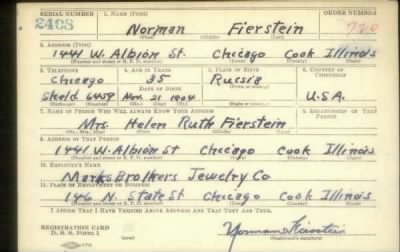 SERIAL NUMBER 1. NAME (Print) ORDER NUMBER
2408 Norman Fierstein 720
(First) (Middle) (Last)
2. ADDRESS (Print)
1441 W. Albion St. Chicago Cook Illinois
(Number and street or R. F. D. number) (Town) (County) (State)
3. TELEPHONE 4. AGE IN YEARS 5. PLACE OF BIRTH 6. COUNTRY OF CITIZENSHIP
Chicago 35 Russia
DATE OF BIRTH
Sheld 6459 Nov. 21 1904 U.S.A.
7. NAME OF PERSON WHO WILL ALWAYS KNOW YOUR ADDRESS 8. RELATIONSHIP OF THAT PERSON
Mrs. Helen Ruth Fierstein
(Mr., Mrs., Miss) (First) (Middle) (Last)
9. ADDRESS OF THAT PERSON
1441 W. Albion St Chicago Cook Illinois
(Number and street or R. F. D. number) (Town) (County) (State)
10. EMPLOYER'S NAME
Marks Brothers Jewelry Co
11. PLACE OF EMPLOYMENT OR BUSINESS
146 N. State St Chicago Cook Illinois
(Number and street or R. F. D. number) (Town) (County) (State)
I AFFIRM THAT I HAVE VERIFIED ABOVE ANSWERS AND THAT THEY ARE TRUE.
REGISTRATION CARD
D. S. S. Form 1 Norman Fierstein
(Registrant's signature)